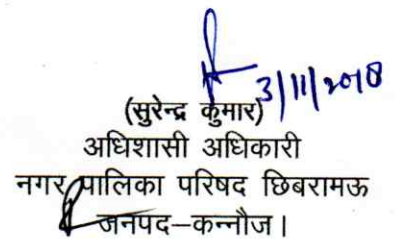 3/11/2018
(सुरेन्द्र कुमार)
अधिशासी अधिकारी
नगर पालिका परिषद छिबरामऊ
जनपद–कन्नौज।